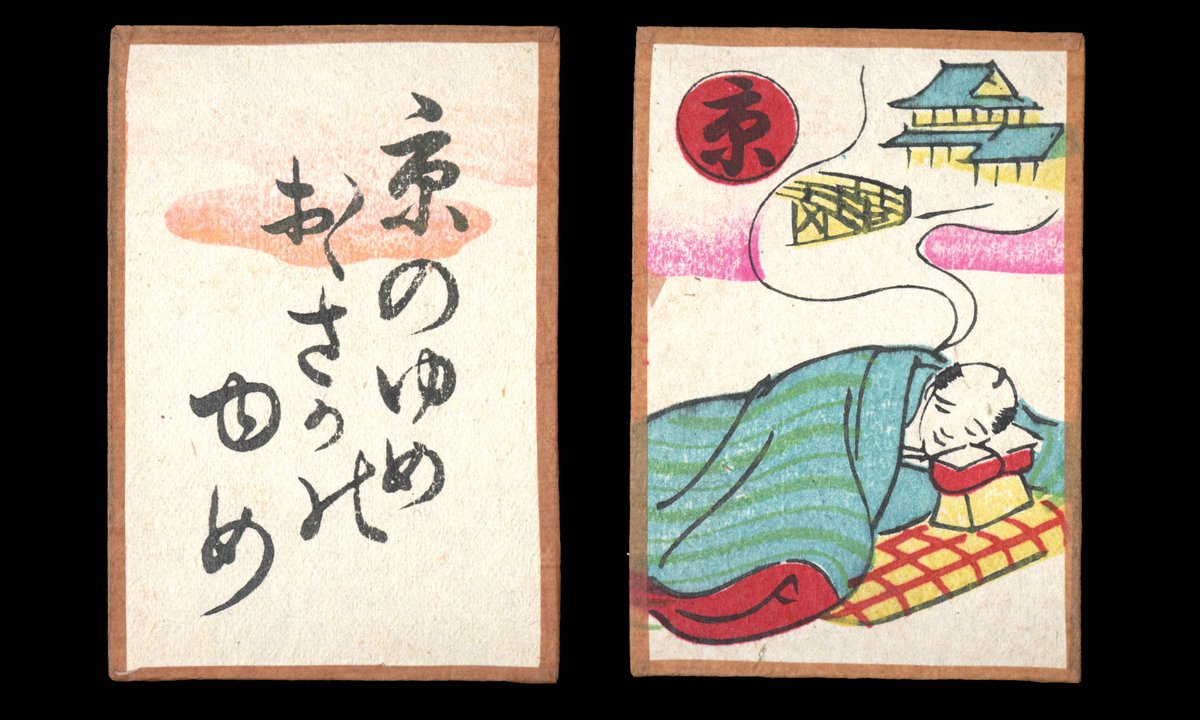 京のゆめ
おゝさかの
ゆめ
京